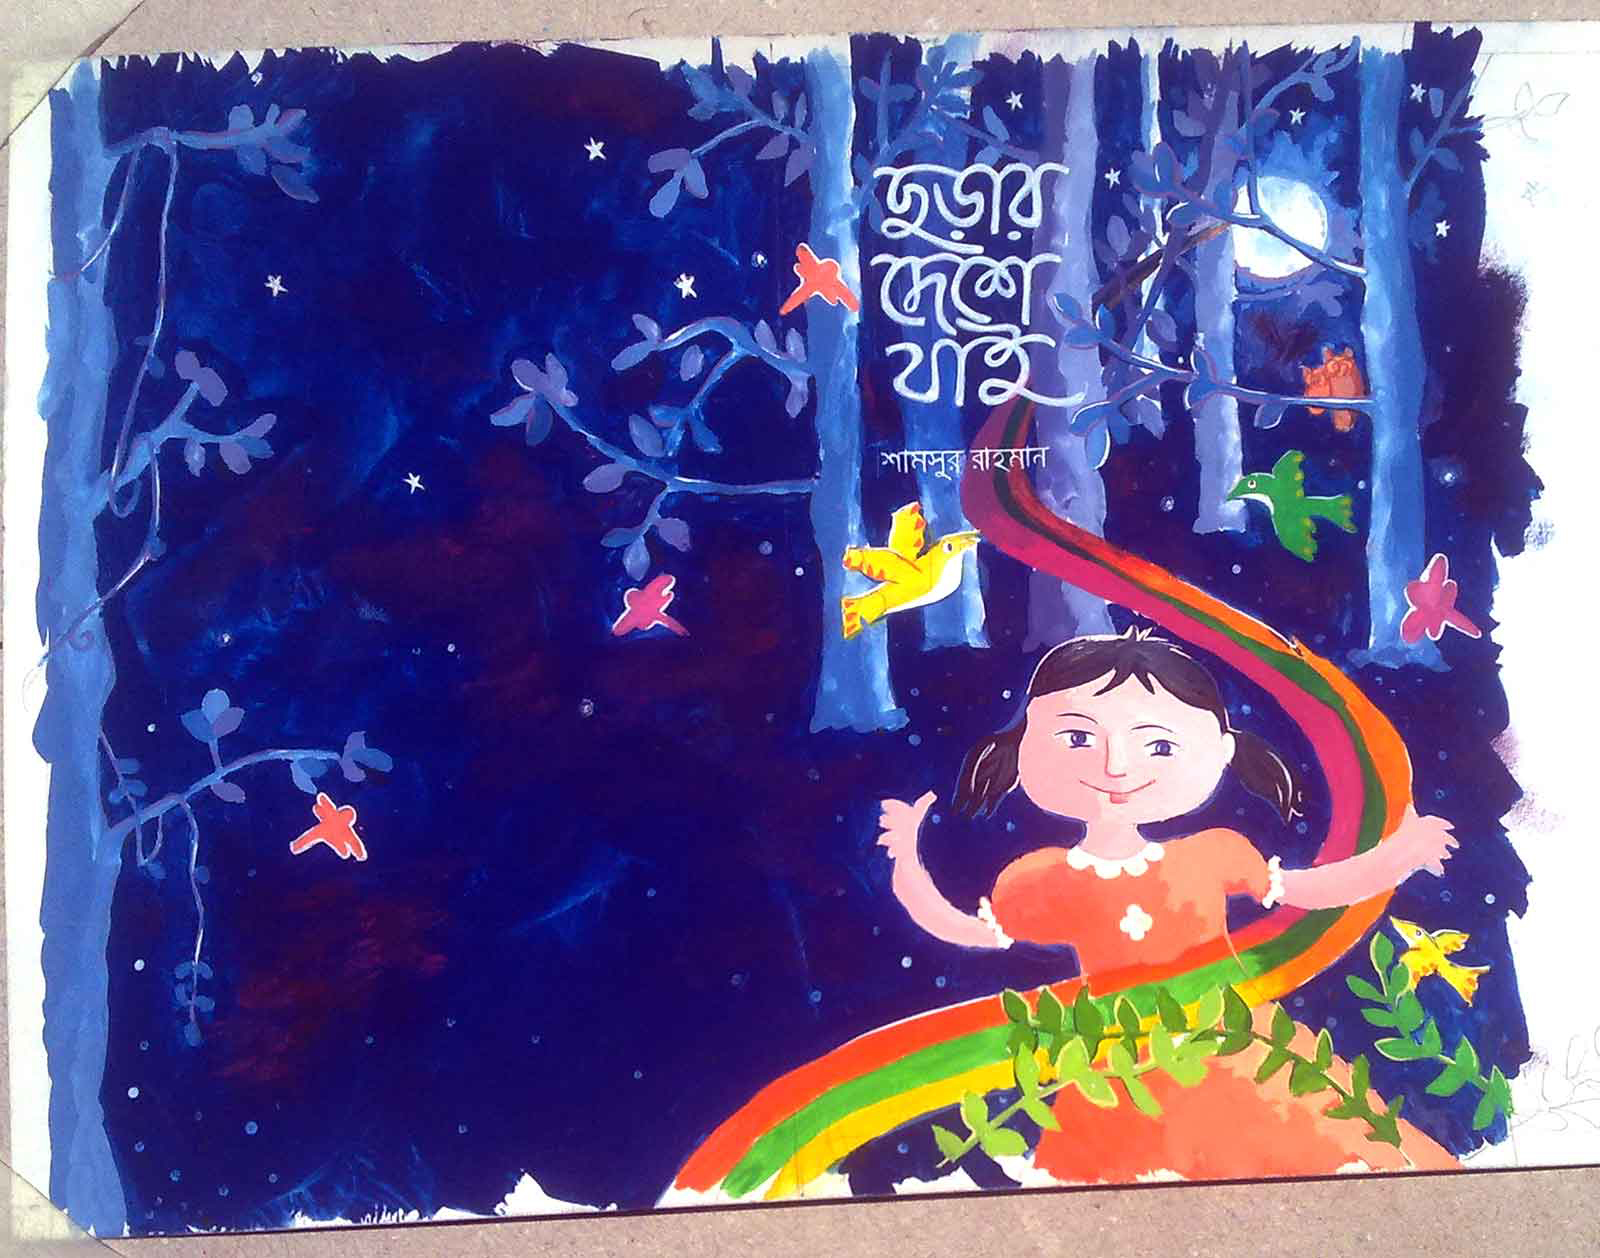 ছড়ার
দেশে
যাই
শামসুর রাহমান